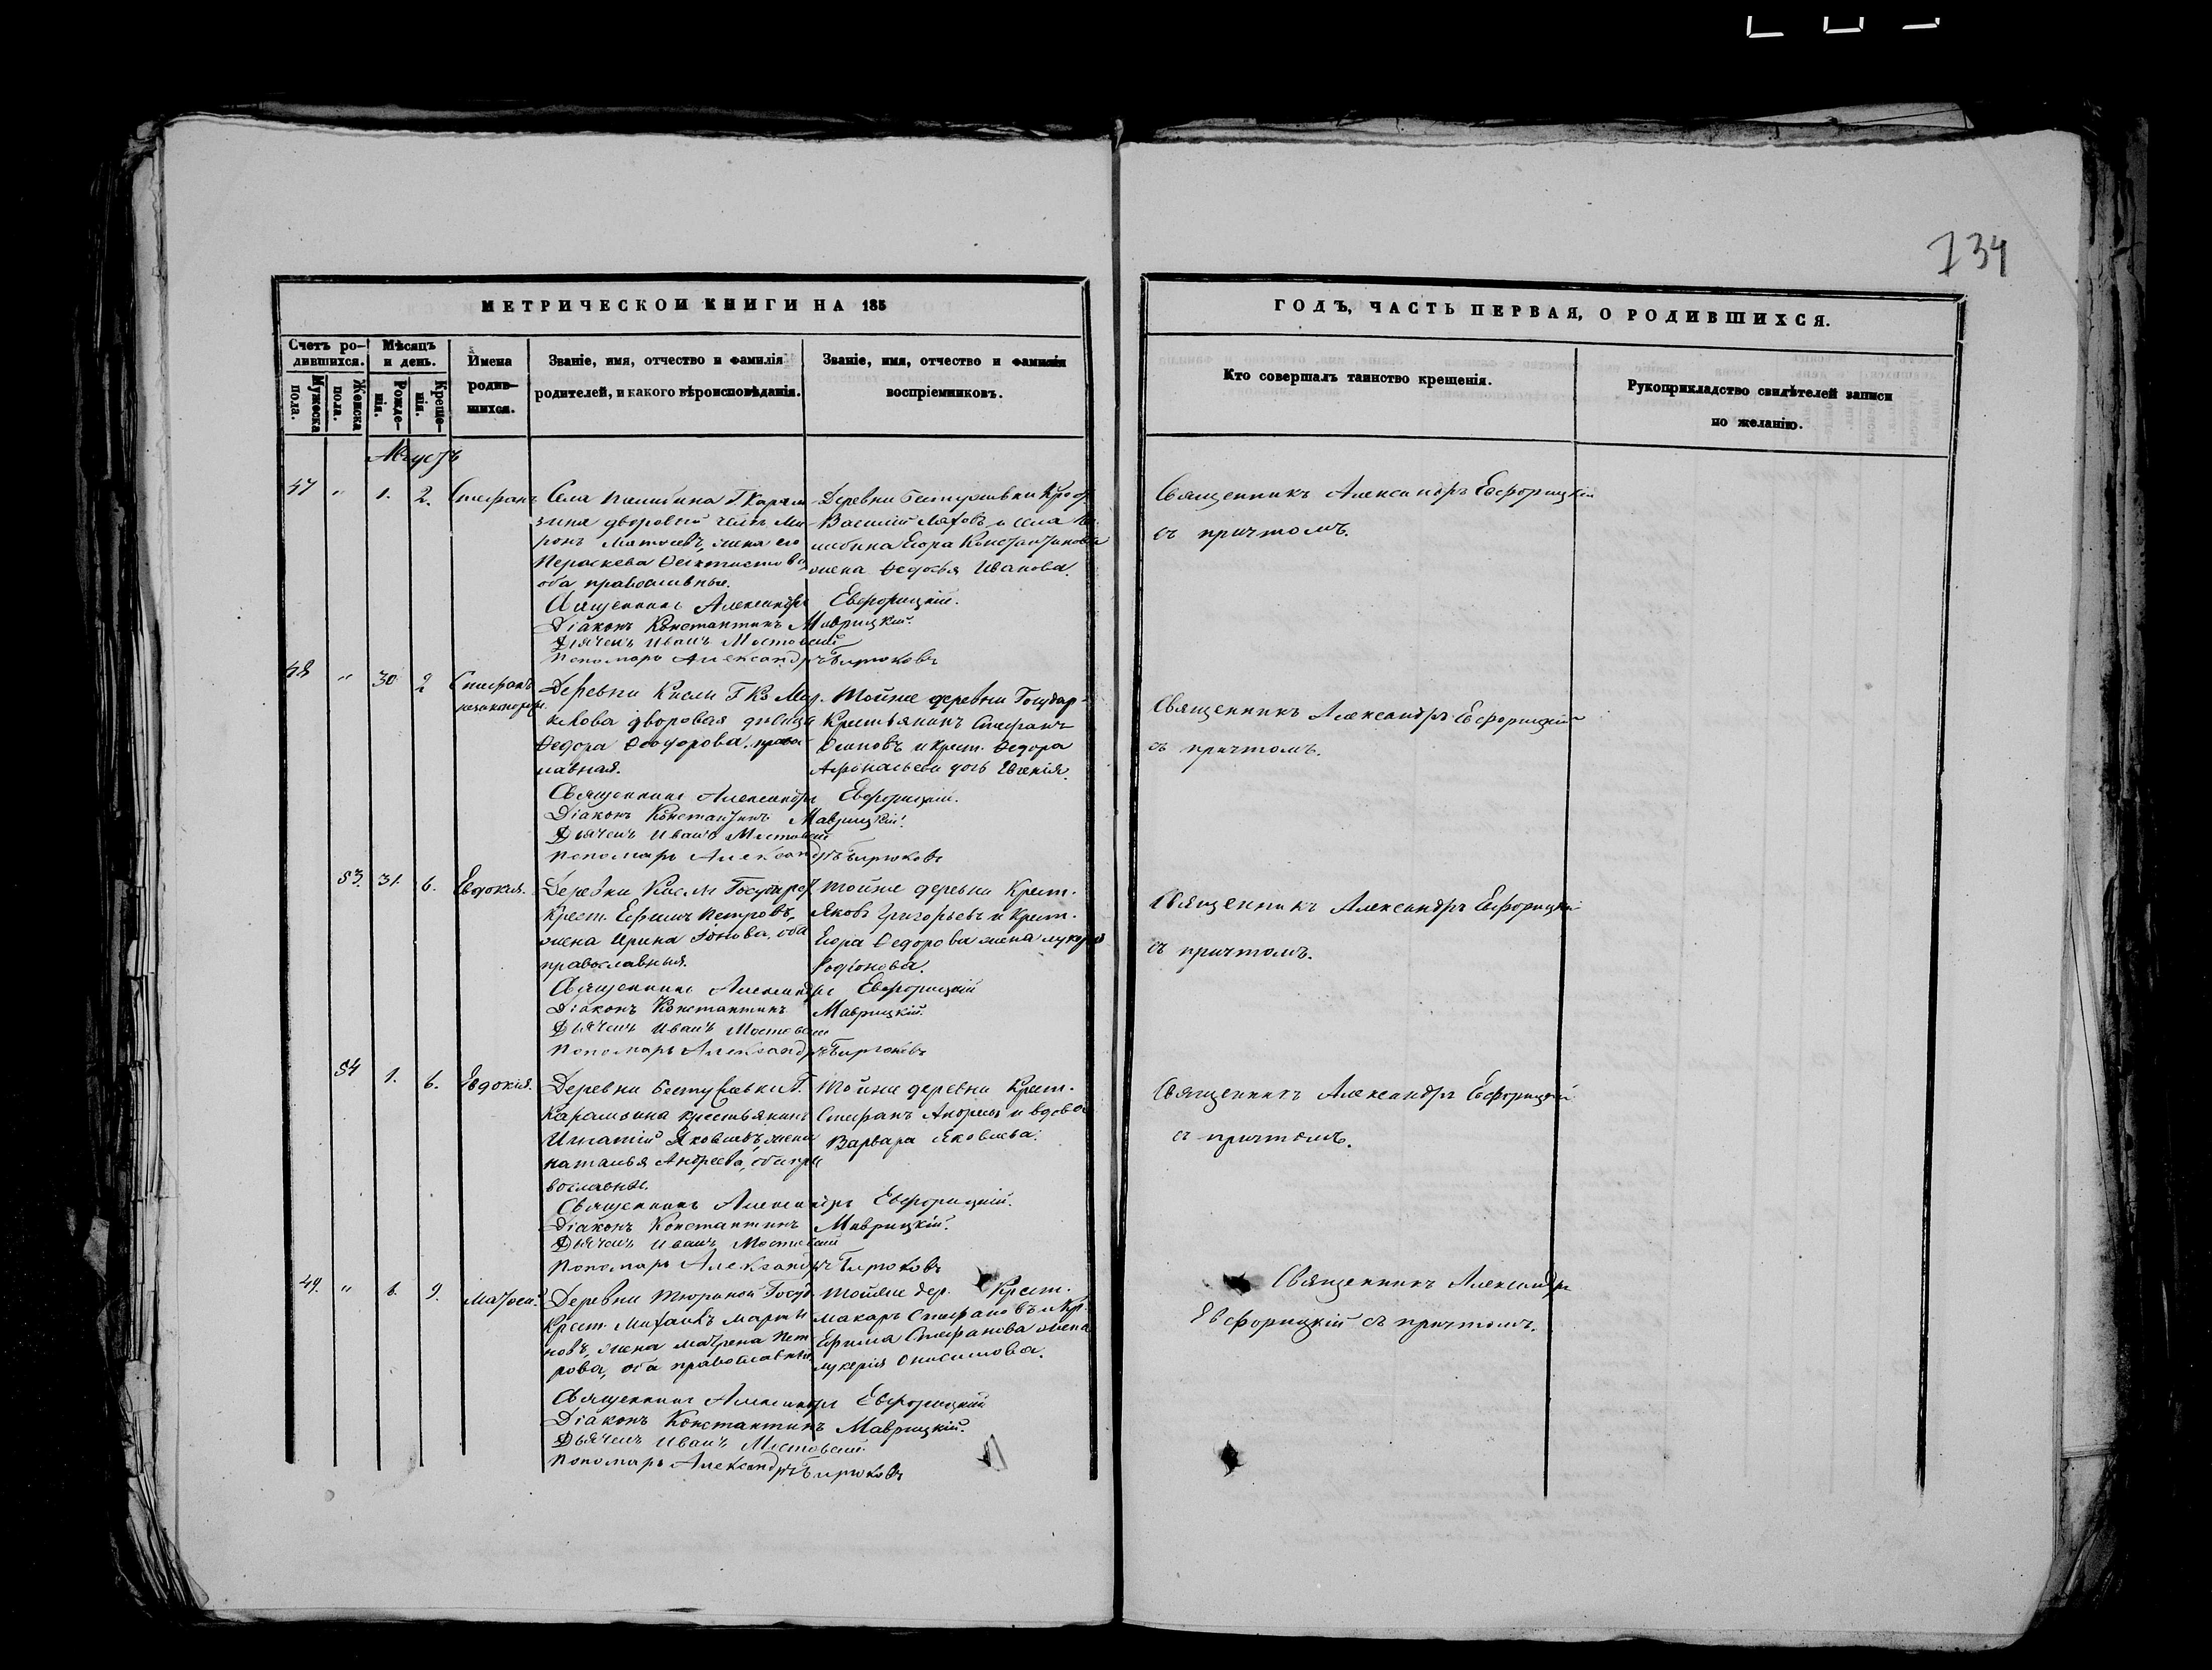 734
МЕТРИЧЕСКОЙ КНИГИ НА 185
Счетъ ро-
дившихся.
Мужеска
пола.
Женска
пола.
Мѣсяцъ
и день.
Рожде-
нія.
Креще-
нія.
Имена
родив-
шихся.
Званіе, имя, отчество и фамилія
родителей, и какого вѣроисповѣданія.
Званіе, имя, отчество и фамилія
воспріемниковъ.
ГОДЪ, ЧАСТЬ ПЕРВАЯ, О РОДИВШИХСЯ.
Кто совершалъ таинство крещенія.
Рукоприкладство свидѣтелей записи
по желанію.
Августъ
47 " 1. 2. Стефанъ
Села Г. Карам
зина дворовый челъ. Ми
ронъ Матвеевъ, жена его
Параскева
оба православные.
Деревни Бестужевки
Василій и села
Егора Константинова
жена Федосья Иванова.
Священникъ Александръ Евфорицкій
съ причтомъ.
Священникъ Александръ Евфорицкій.
Діаконъ Константинъ Маврицкій.
Дьячекъ Иванъ Мостовскій
Пономарь Александръ Бирюковъ
48 " 30 2 Стефанъ
незаконорож.
Деревни Кисли Г.
дворовая девица
Федора Феодорова, право
славная.
Тойже деревни Государ-
Крестьянинъ Стефанъ
Осиповъ и крест. Федора
Афонасьева дочь Евгенія.
Священникъ Александръ Евфорицкій
съ причтомъ.
Священникъ Александръ Евфорицкій.
Діаконъ Константинъ Маврицкій.
Дьячекъ Иванъ Мостовскій
Пономарь Александръ Бирюковъ
53. 31. 6. Евдокія.
Деревни Кисли
Крест. Ефимъ Петровъ,
жена Ирина Іонова, оба
православныя.
Тойже деревни Крест.
Яковъ Григорьевъ и Крест.
Егора Федорова жена Лукерья
Родіонова.
Священникъ Александръ Евфорицкій
съ причтомъ.
Священникъ Александръ Евфорицкій
Діаконъ Константинъ Маврицкій.
Дьячекъ Иванъ Мостовскій
Пономарь Александръ Бирюковъ
54 1. 6. Евдокія.
Деревни Бестужевки Г.
Карамзина крестьянинъ
Игнатій Яковлевъ, жена
Наталья Андреева, оба пра
вославные.
Тойже деревни Крест.
Стефанъ Андреевъ и вдова
Варвара Яковлева.
Священникъ Александръ Евфорицкій
съ причтомъ.
Священникъ Александръ Евфорицкій.
Діаконъ Константинъ Маврицкій.
Дьячекъ Иванъ Мостовскій
Пономарь Александръ Бирюковъ
49. " 8. 9. Матвей.
Деревни Тюриной Госуд.
Крест. Марти
новъ, жена Матрена Пет
рова, оба православныя
Тойже дер. Крест.
Макаръ Стефановъ и Кр.
Ефима Стефанова жена
Лукерія Онисимова.
Священникъ Александръ
Евфорицкій съ причтомъ.
Священникъ Александръ Евфорицкій
Діаконъ Константинъ Маврицкій.
Дьячекъ Иванъ Мостовскій.
Пономарь Александръ Бирюковъ